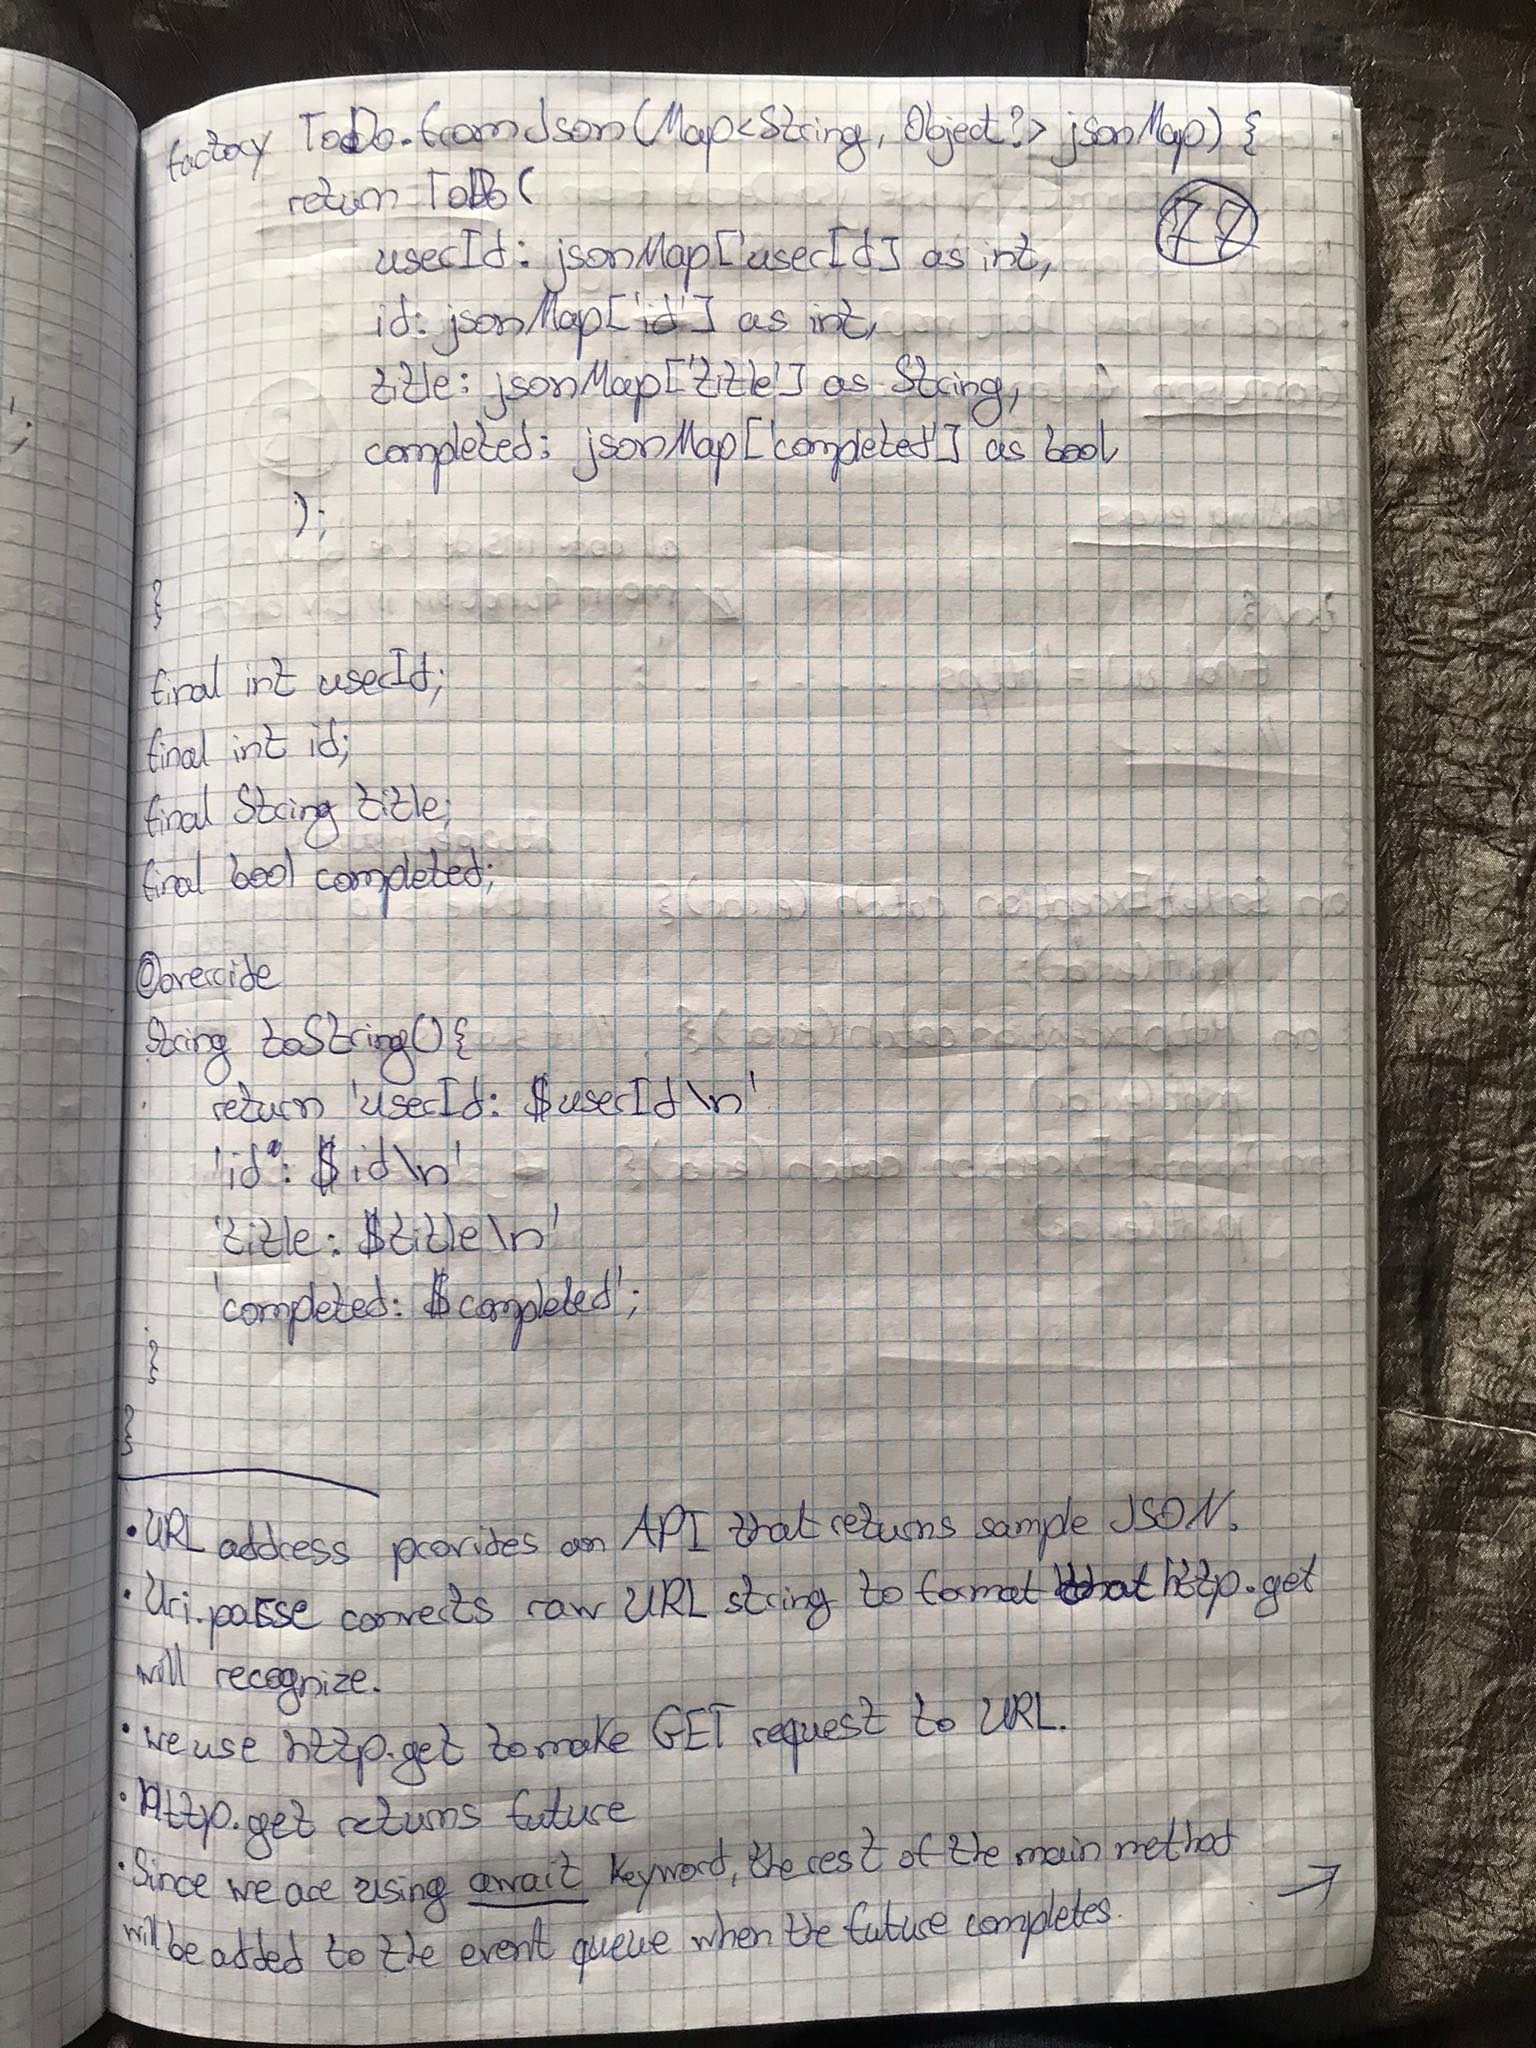 factory ToDo.fromJson(Map<String, Object?> jsonMap) {
return ToDo(
77
userId: jsonMap['userId'] as int,
id: jsonMap['id'] as int,
title: jsonMap['title'] as String,
completed: jsonMap['completed'] as bool
);
}
final int userId;
final int id;
final String title;
final bool completed;
@override
String toString() {
return 'userId: $userId\n'
'id: $id\n'
'title: $title\n'
'completed: $completed';
}
}
• URL address provides an API that returns sample JSON.
• Uri.parse converts raw URL string to format that http.get
will recognize.
• we use http.get to make GET request to URL.
• Http.get returns future
• Since we are using await keyword, the rest of the main method
will be added to the event queue when the future completes.